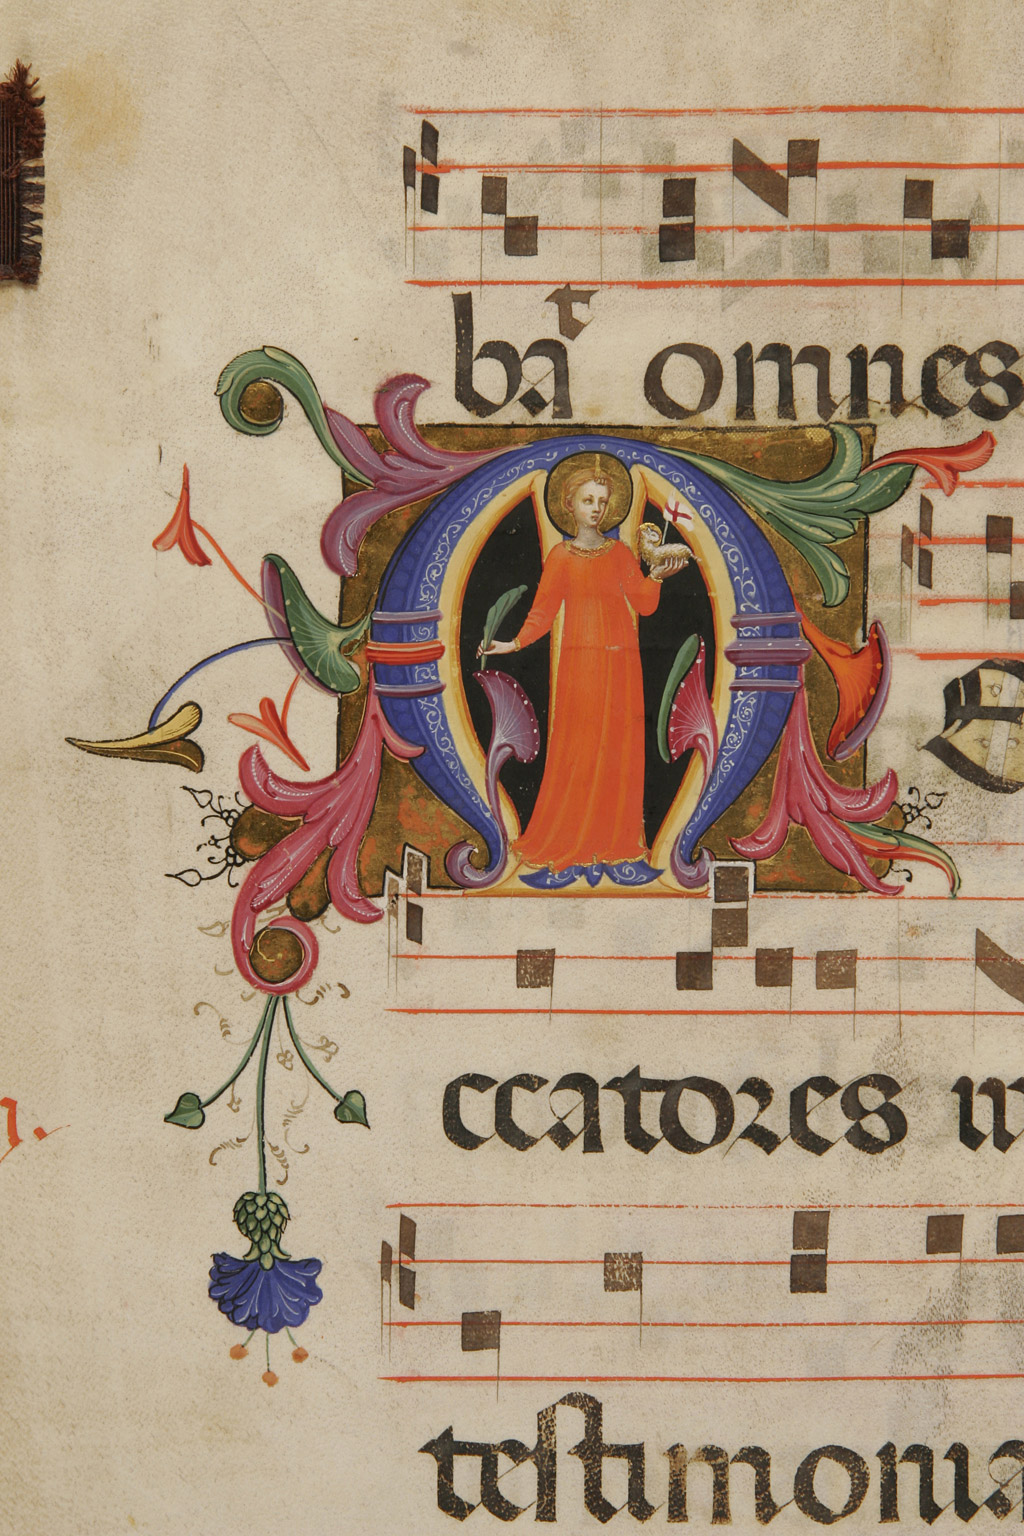 bat omnes
M e
ccatores in
testimonia